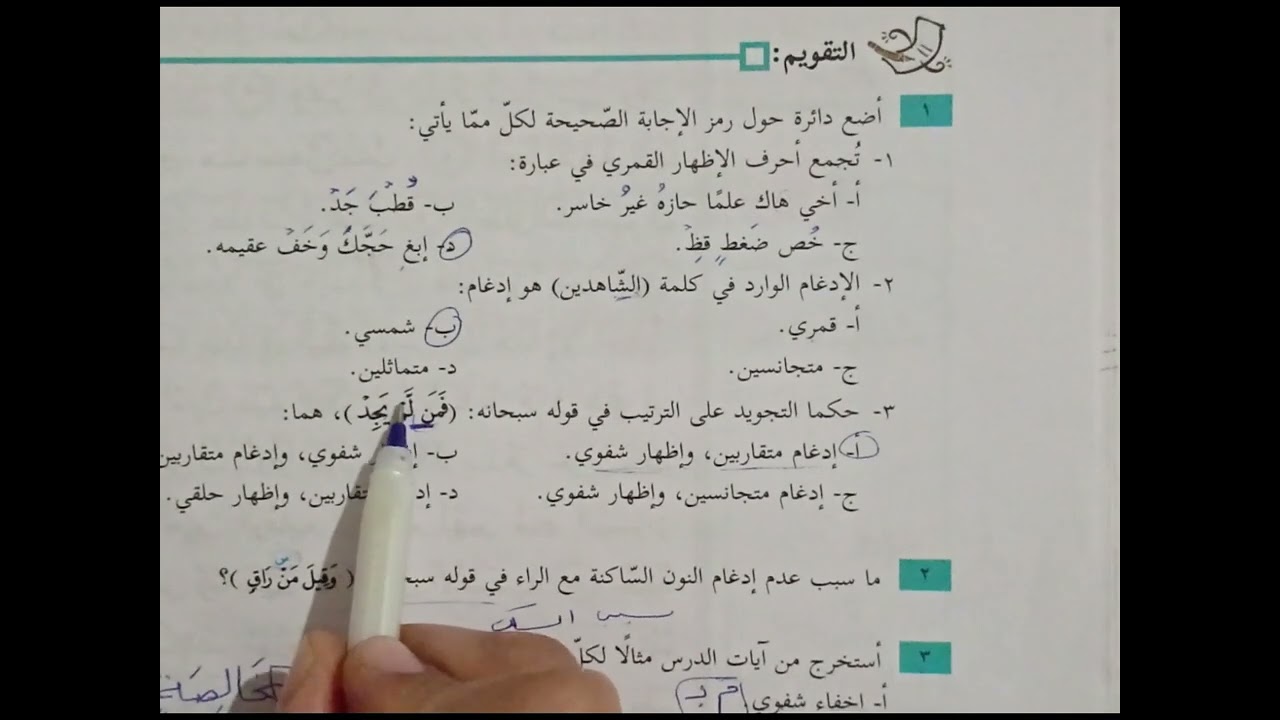 التقويم:
١ أضع دائرة حول رمز الإجابة الصّحيحة لكلّ ممّا يأتي:
١- تُجمع أحرف الإظهار القمري في عبارة:
أ- أخي هَاك علمًا حازهُ غيرُ خاسر. ب- قُطْبَ جَدْ.
ج- خُص ضَغطٍ قِظْ. د- إبغِ حَجَّكَ وَخَفْ عقيمه.
٢- الإدغام الوارد في كلمة (الشّاهدين) هو إدغام:
أ- قمري. ب- شمسي.
ج- متجانسين. د- متماثلين.
٣- حكما التجويد على الترتيب في قوله سبحانه: (فَمَن لَّمْ يَجِدْ)، هما:
أ- إدغام متقاربين، وإظهار شفوي. ب- شفوي، وإدغام متقاربين
ج- إدغام متجانسين، وإظهار شفوي. د- متقاربين، وإظهار حلقي.
٢ ما سبب عدم إدغام النون السّاكنة مع الراء في قوله (وَقِيلَ مَنْ رَاقٍ)؟
س
سبب السكت
٣ أستخرج من آيات الدرس مثالًا لكلّ
أ- اخفاء شفوي م ب